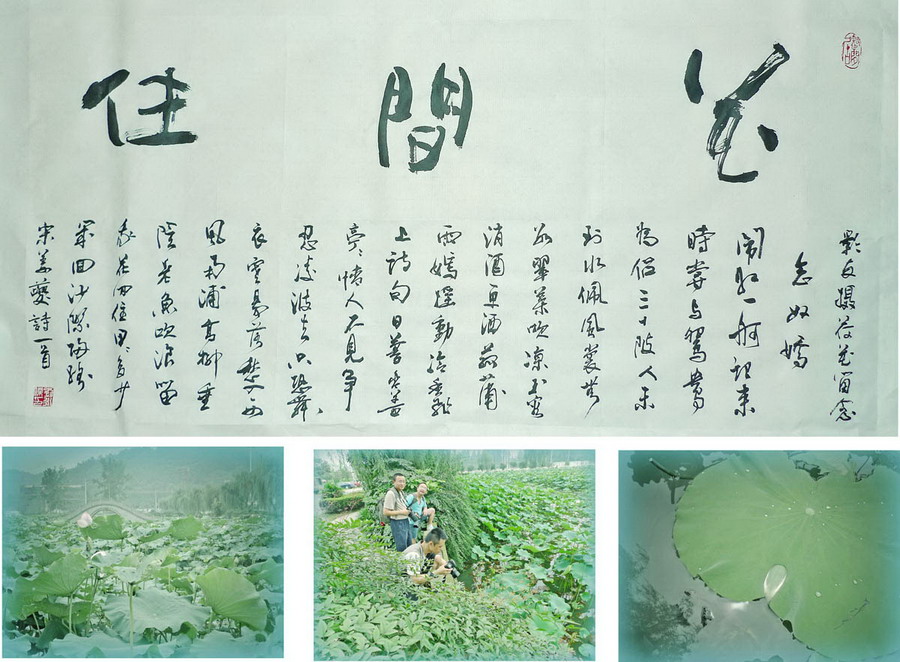 花間住
影友攝荷花留念
念奴嬌
鬧紅一舸記來
時嘗與鴛鴦
為侶三十陂人未
到水佩風裳無
數翠葉吹涼玉容
消酒更洒菰蒲
雨嫣摇動冷香飛
上詩句日暮青蓋
亭亭情人不見爭
忍凌波去只恐舞
衣寒易落愁入西
風南浦高柳垂
陰老魚吹浪留
我花間住田田多少
幾回沙際歸路
宋姜夔詩一首